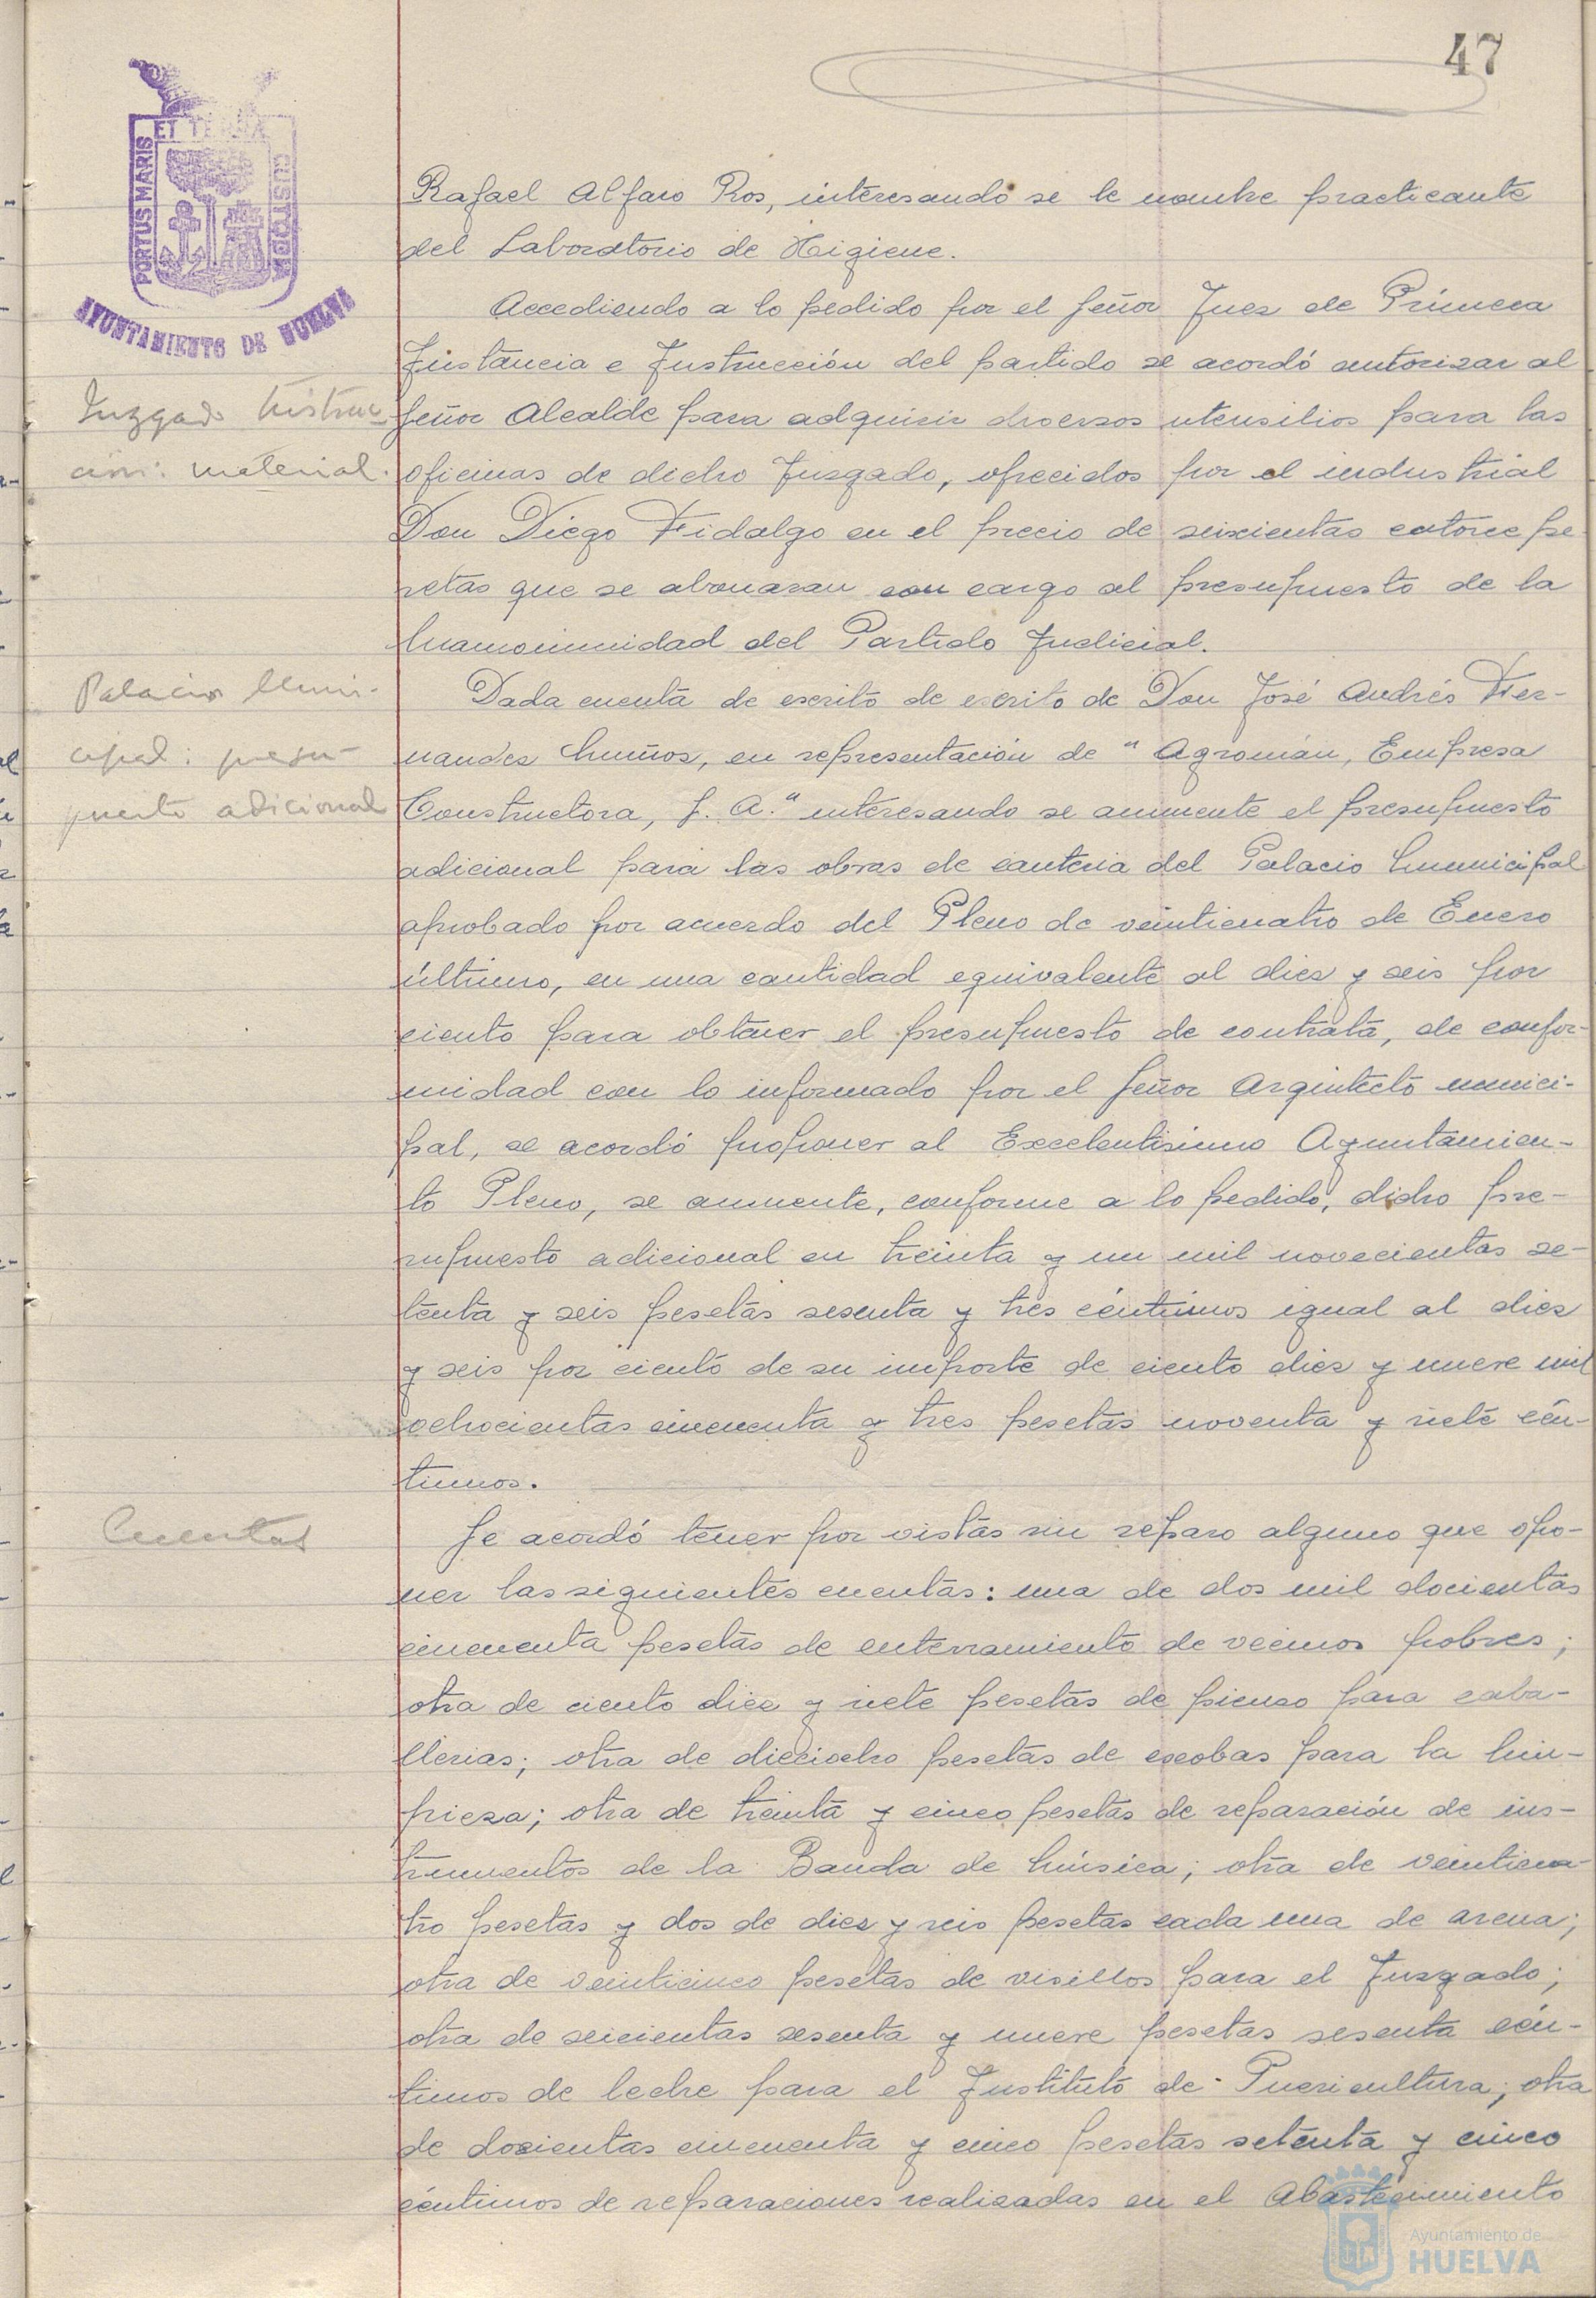 47
PORTUS MARIS
ET TERRÆ
CUSTODIA
AYUNTAMIENTO DE HUELVA
Rafael Alfaro Ros, interesando se le nombre practicante
del Laboratorio de Higiene.
Accediendo a lo pedido por el Señor Juez de Primera
Juzgado Instruc
Instancia e Instrucción del partido se acordó autorizar al
Señor Alcalde para adquirir diversos utensilios para las
ción: material.
oficinas de dicho Juzgado, ofrecidos por el industrial
Don Diego Fidalgo en el precio de seiscientas catorce pe
setas que se abonaran con cargo al presupuesto de la
Mancomunidad del Partido Judicial.
Palacio Muni-
cipal: presu-
puesto adicional
Dada cuenta de escrito de escrito de Don José Andrés Fer-
nandez Muños, en representación de "Agroman, Empresa
Constructora, S. A." interesando se aumente el presupuesto
adicional para las obras de canteria del Palacio Municipal
aprobado por acuerdo del Pleno de veinticuatro de Enero
último, en una cantidad equivalente al diez y seis por
ciento para obtener el presupuesto de contrata, de confor-
midad con lo informado por el Señor Arquitecto munici-
pal, se acordó proponer al Excelentisimo Ayuntamien-
to Pleno, se aumente, conforme a lo pedido, dicho pre-
supuesto adicional en treinta y un mil novecientas se-
tenta y seis pesetas sesenta y tres céntimos igual al diez
y seis por ciento de su importe de ciento diez y nueve mil
ochocientas cincuenta y tres pesetas noventa y siete cén-
timos.
Cuentas
Se acordó tener por vistas sin reparo alguno que opo-
ner las siguientes cuentas: una de dos mil docientas
cincuenta pesetas de enterramiento de vecinos pobres;
otra de ciento diez y siete pesetas de pienso para caba-
llerias; otra de dieciocho pesetas de escobas para la lim-
pieza; otra de treinta y cinco pesetas de reparación de ins-
trumentos de la Banda de Música; otra de veinticua-
tro pesetas y dos de diez y seis pesetas cada una de arena;
otra de veinticinco pesetas de visillos para el Juzgado;
otra de seicientas sesenta y nueve pesetas sesenta cén-
timos de leche para el Instituto de Puericultura; otra
de docientas cincuenta y cinco pesetas setenta y cinco
céntimos de reparaciones realizadas en el Abastecimiento
Ayuntamiento de
HUELVA